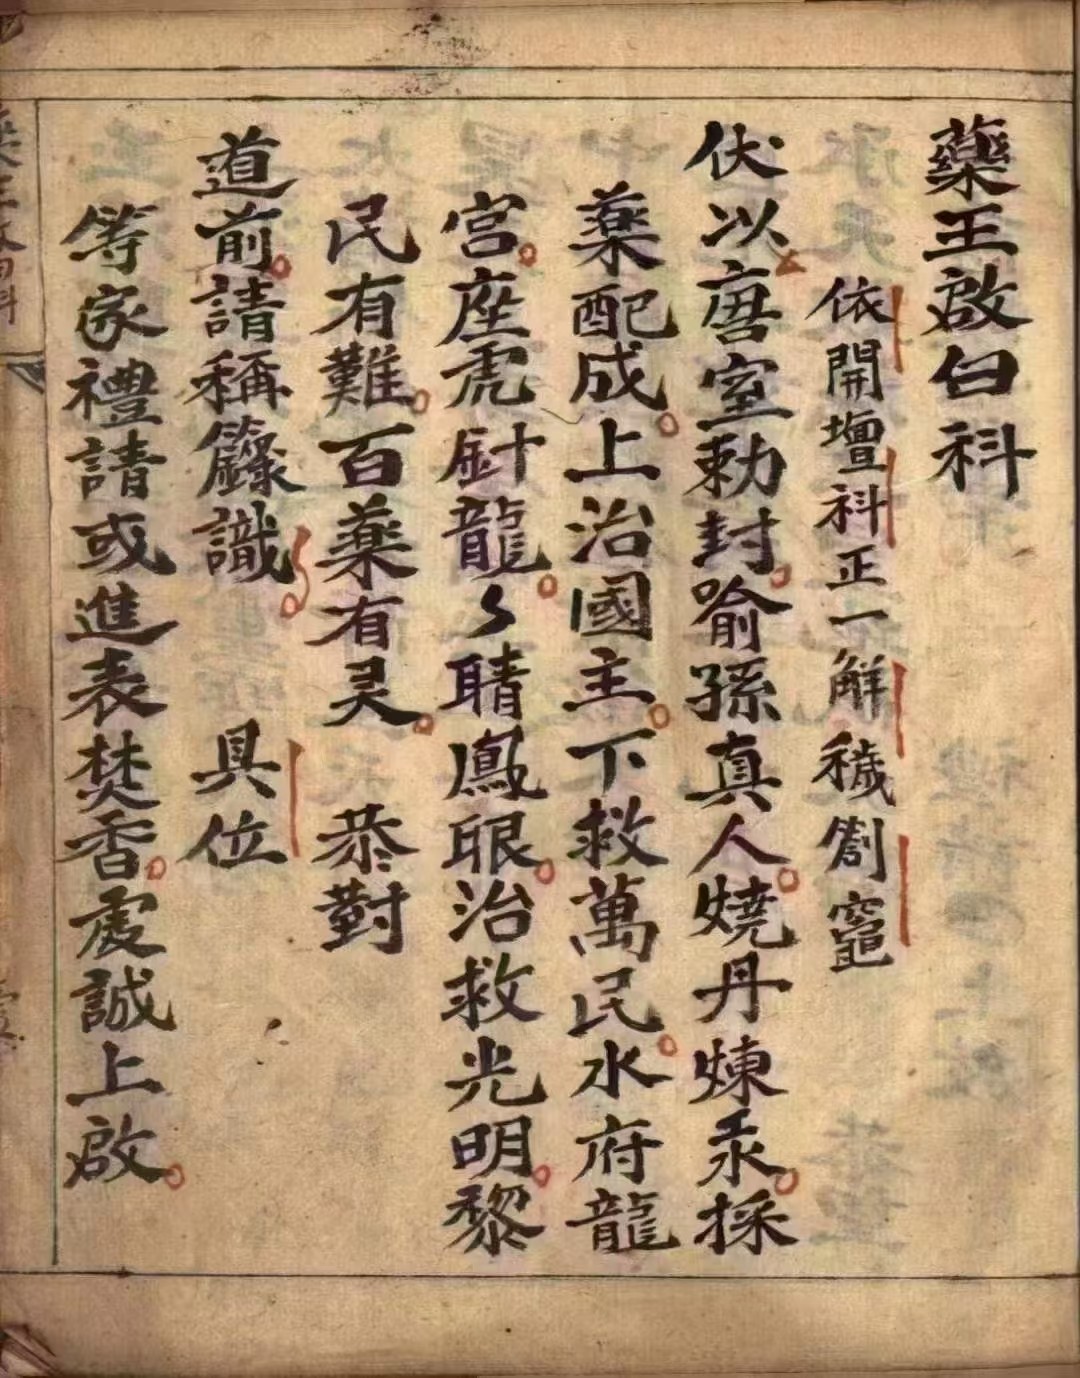 藥王啟白科
依開壇科正一解穢劄竈
伏以唐室勅封喻孫真人燒丹煉汞採
藥配成上治國主下救萬民水府龍
宮座虎針龍〻睛鳳眼治救光明黎
民有難百藥有灵 恭對
道前請稱籙識 具位
等家禮請或進表焚香虔誠上啟